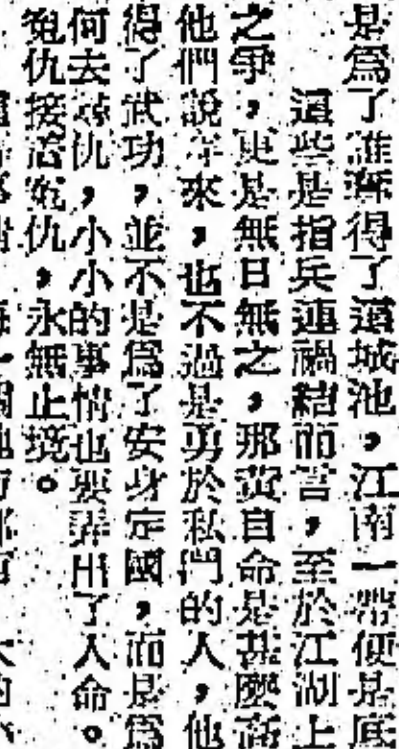 是爲了誰奪得了這城池，江南一帶便是底
這些是指兵連禍結而言，至於江湖上
之爭，更是無日無之，那自命是甚麼高
他們說來，也不過是勇於私鬥的人，他
得了武功，並不是爲了安身定國，而是爲
何去尋仇，小小的事情也要弄出了人命。
寃仇接着寃仇，永無止境。